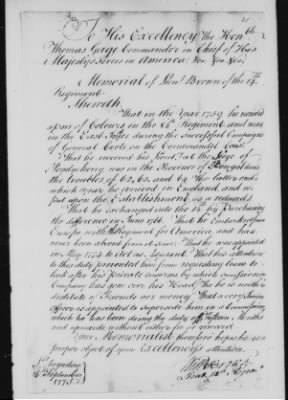 To His Excellency The Honble
Thomas Gage Commander in Chief of His
Majesty's Forces in America &ca &ca &ca
Memorial of Lieut Brown of the 14th
Regiment
Sheweth
That in the Year 1759 he received
a pair of Colours in the 84th Regiment and was
in the East Indies during the successful Campaigns
of General Coote on the Command Coast
That he received his Lieut. at the Siege of
Pondicherry was in the Province of Bengal
the troubles of 62, 63, and 64 The latter end
which year he arrived in England and was
put upon the Establishment as a reduced
That he exchanged into the 14 by Purchasing
the difference in June 1766 That he Embarked from
Europe with the Regiment for America, and has
never been absent from it since. That he was appointed
in May 1774 to Act as Adjutant That his attention
to this duty prevented him from requesting leave to
look after his private concerns by which means a
Company has gone over his Head That he is neither
destitute of Friends nor money That a very
Officer is appointed to Supersede him in a
which he has been doing the duty of fifteen Months
and upwards without either fee or reward
Your Memorialist therefore hopes he is a
proper object of your Excellency's attention.
St Augustine
16th September
1775